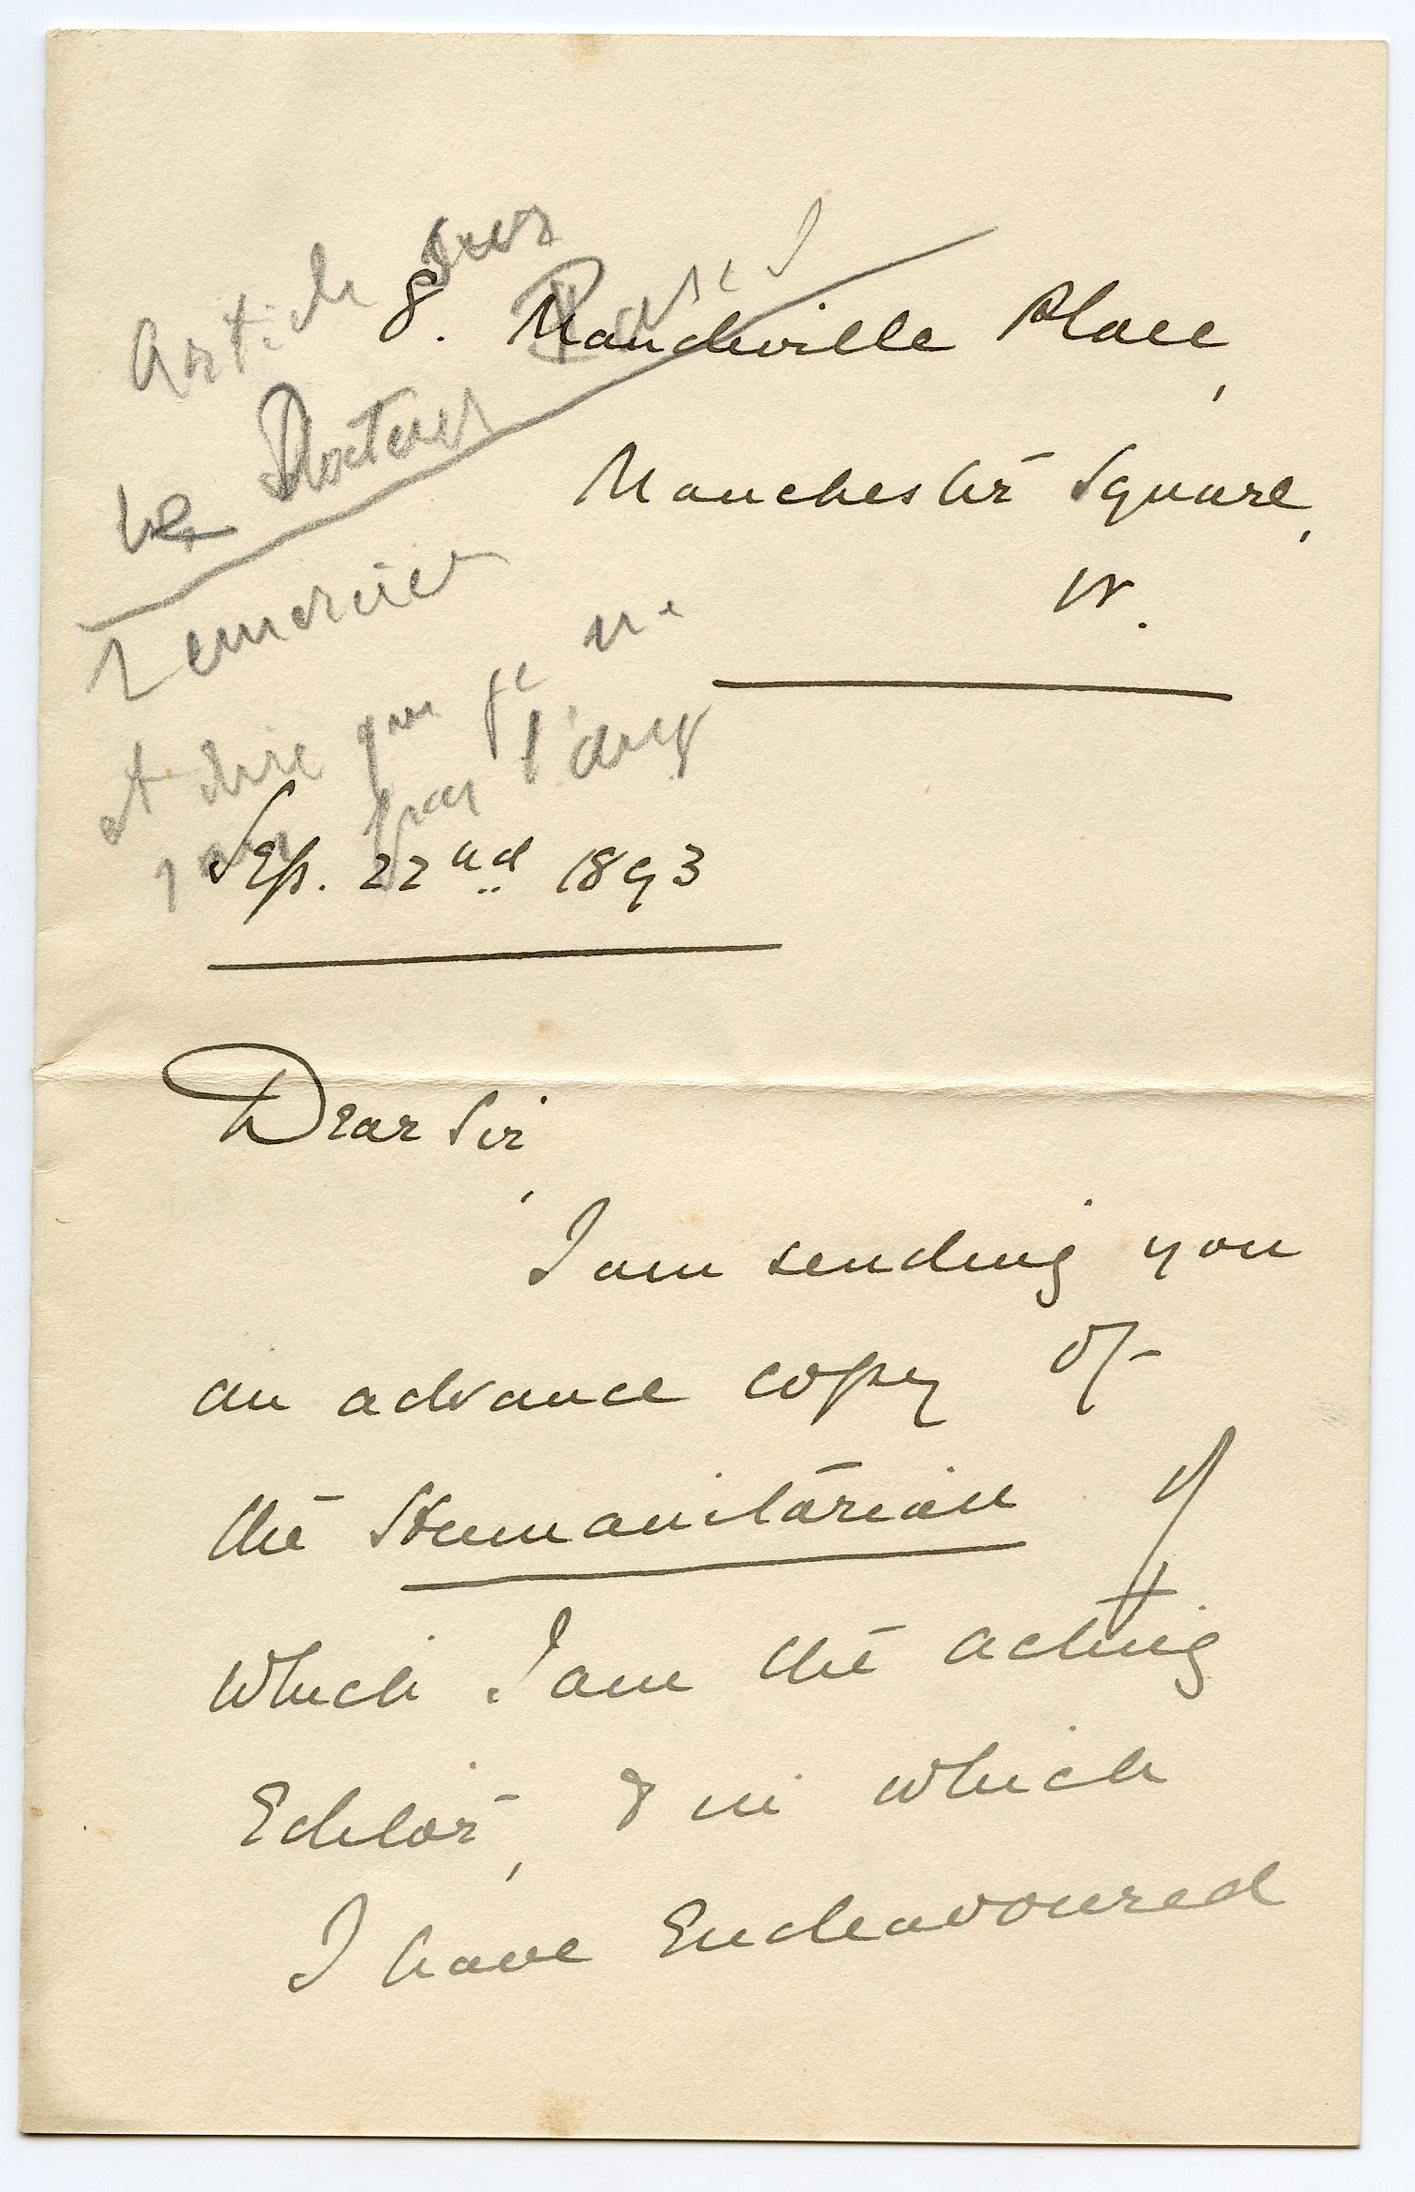 Article sur
le Docteur
remercier
et dire que je ne
pas l'ang
8. Mandeville Place,
Manchester Square,
W.
Sep. 22nd 1893
Dear Sir,
I am sending you
an advance copy of
the Humanitarian of
which I am the acting
Editor, & in which
I have Endeavoured